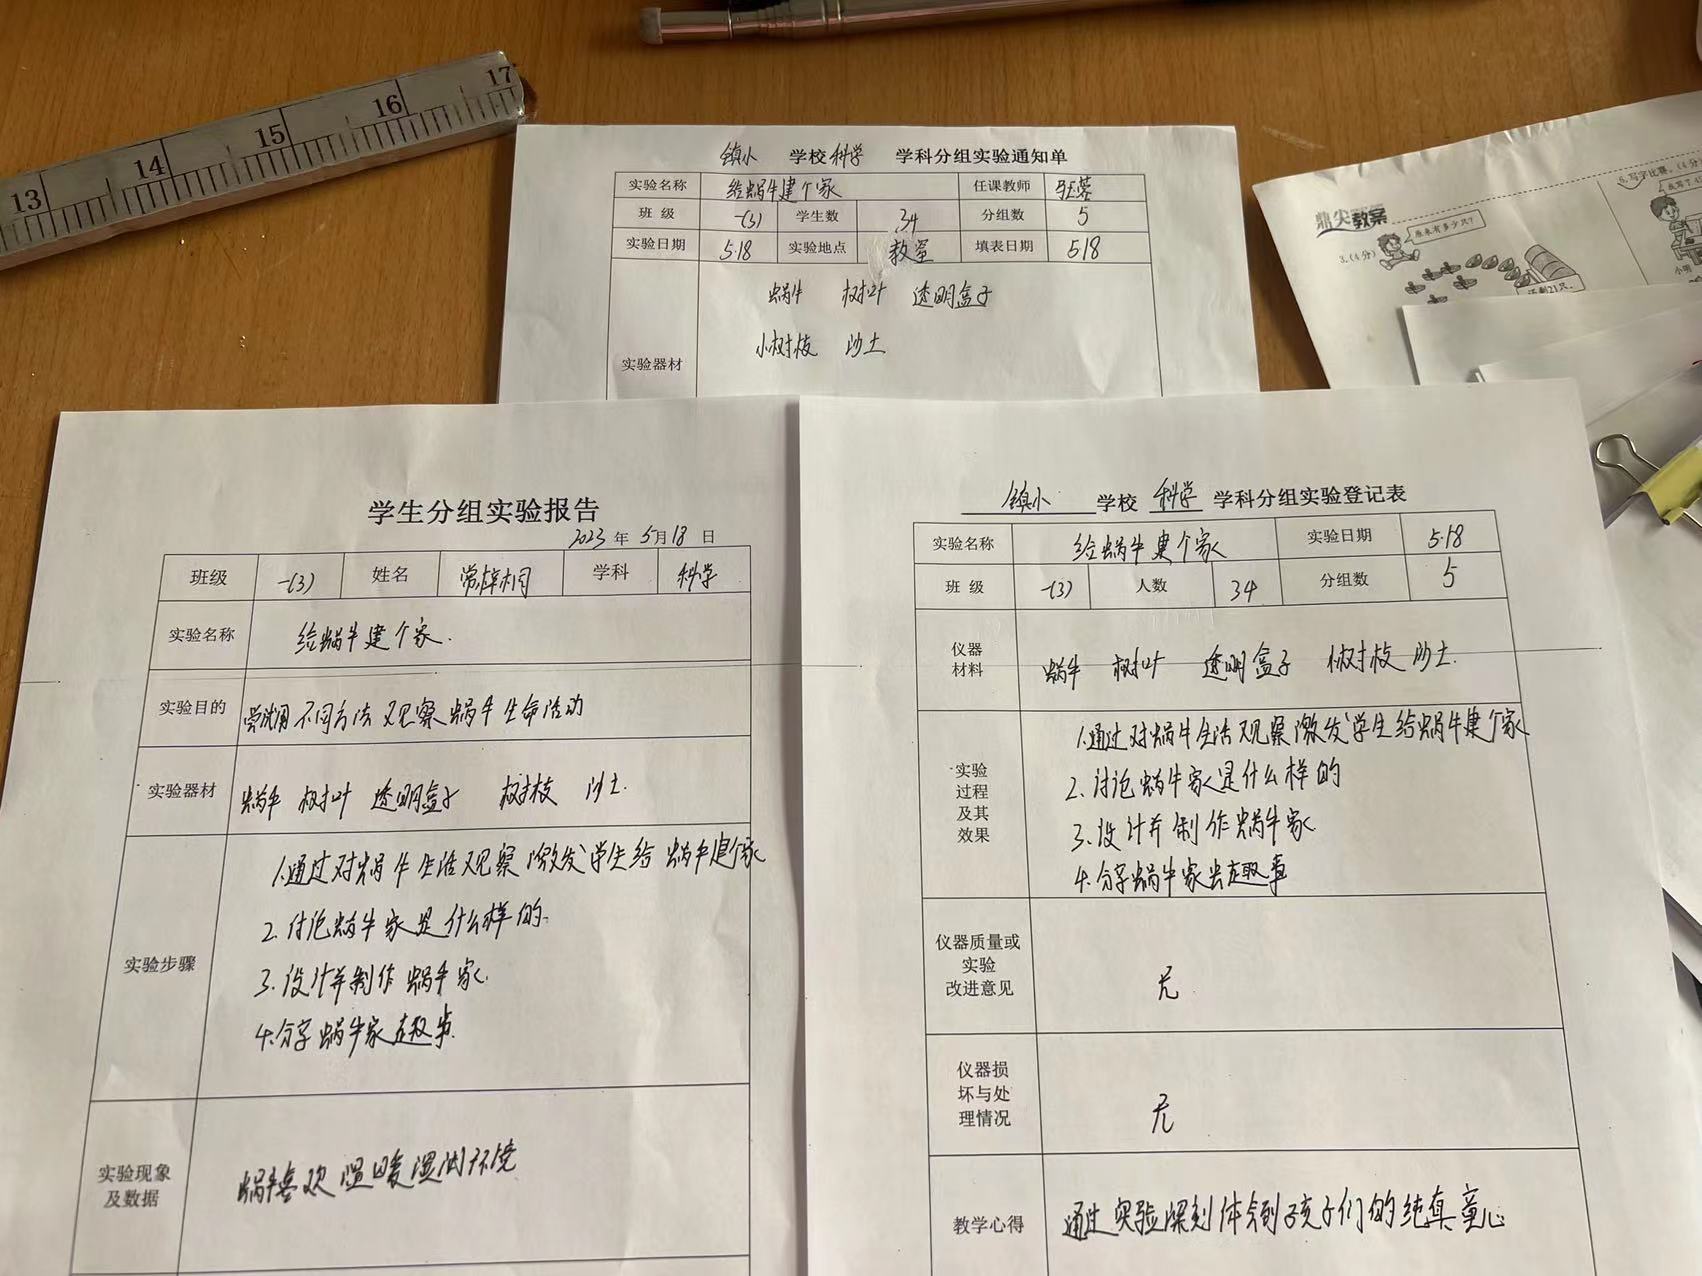 13 14 15 16 17
镇小 学校 科学 学科分组实验通知单
实验名称 给蜗牛建个家 任课教师
班 级 一(3) 学生数 34 分组数 5
实验日期 5.18 实验地点 教室 填表日期 5.18
实验器材 蜗牛 树叶 透明盒子
小树枝 沙土
鼎尖教案
原来有多少只?
3.(4分)
还剩21只。
6.写字比赛。(4分)
小明
学生分组实验报告
2023 年 5月 18 日
班级 一(3) 姓名 学科 科学
实验名称 给蜗牛建个家.
实验目的 尝试用不同方法观察蜗牛生命活动
实验器材 蜗牛 树叶 透明盒子 树枝 沙土.
实验步骤 1.通过对蜗牛生活观察激发学生给蜗牛建个家
2.讨论蜗牛家是什么样的.
3.设计并制作蜗牛家.
4.分享蜗牛家趣事.
实验现象及数据 蜗牛喜欢温暖湿润环境
镇小 学校 科学 学科分组实验登记表
实验名称 给蜗牛建个家 实验日期 5.18
班 级 一(3) 人数 34 分组数 5
仪器材料 蜗牛 树叶 透明盒子 小树枝 沙土.
实验过程及其效果 1.通过对蜗牛生活观察激发学生给蜗牛建个家
2.讨论蜗牛家是什么样的
3.设计并制作蜗牛家
4.分享蜗牛家趣事
仪器质量或实验改进意见 无
仪器损坏与处理情况 无
教学心得 通过实验深刻体会到孩子们的纯真童心